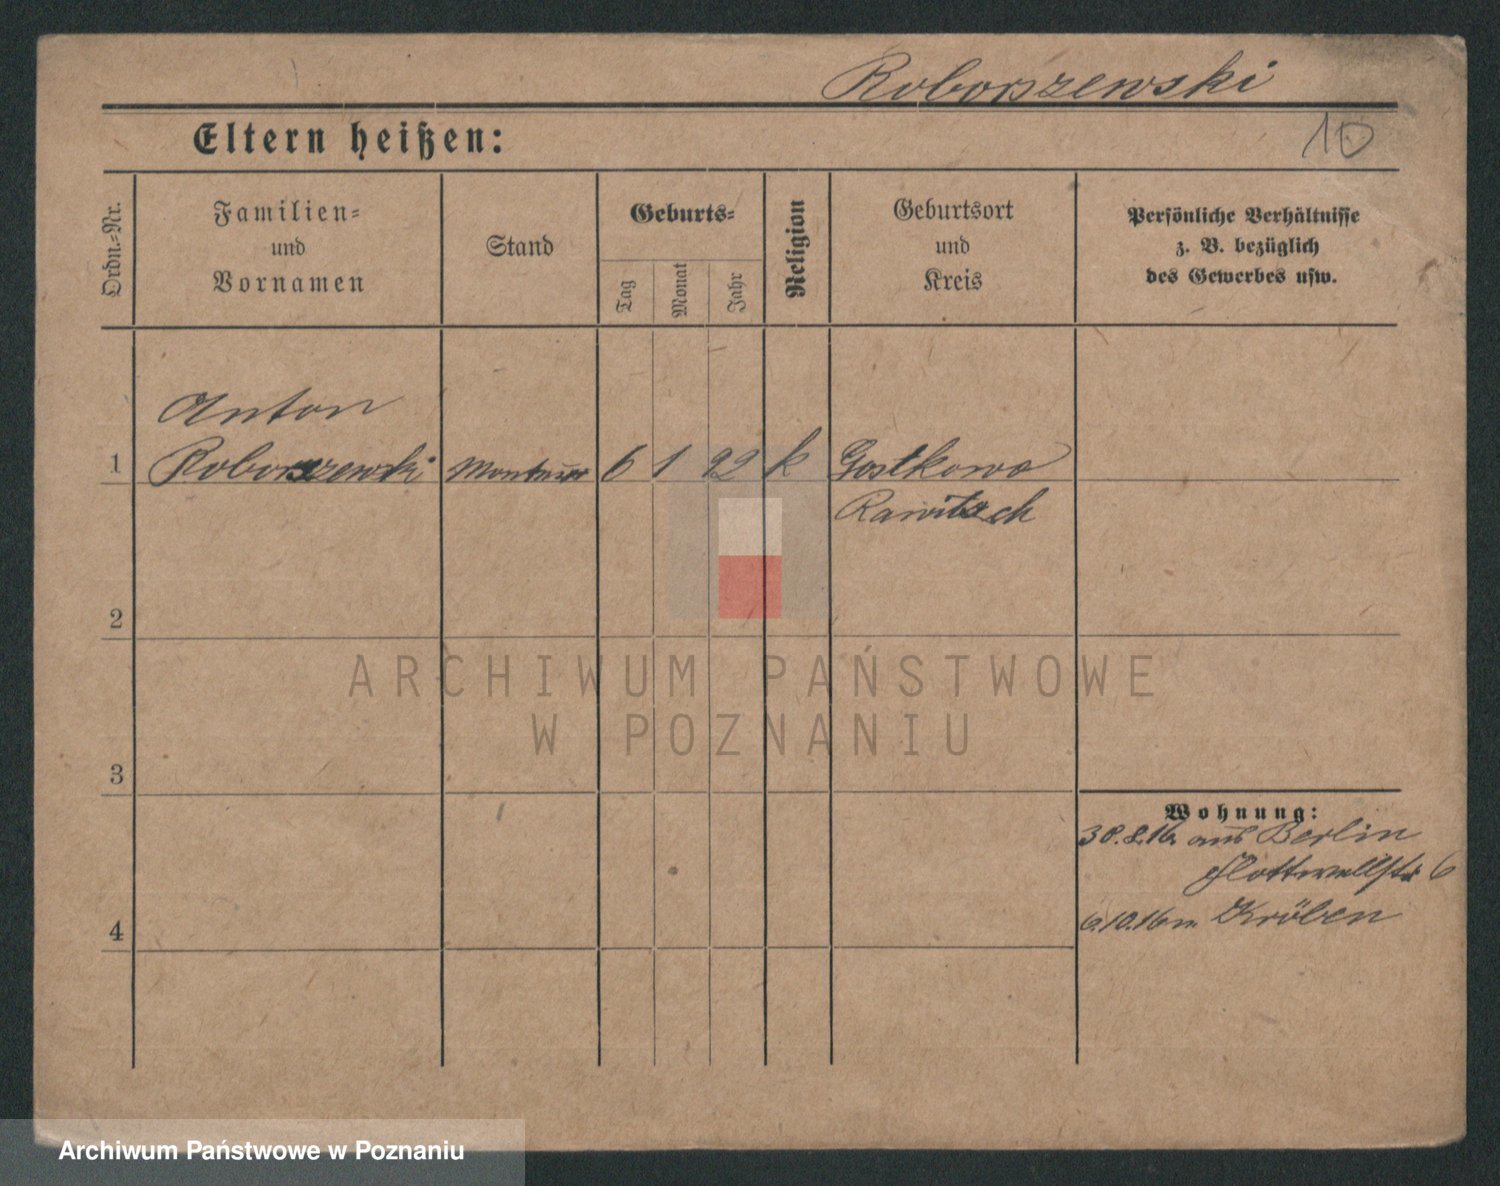 Roborszewski
10
Eltern heißen:
Ordn.-Nr.
Familien-
und
Vornamen
Stand
Geburts-
Tag
Monat
Jahr
Religion
Geburtsort
und
Kreis
Persönliche Verhältnisse
z. B. bezüglich
des Gewerbes usw.
Anton
1 Roborszewski Monteur 6 1 92 k Gostkowo
Rawitsch
2
ARCHIWUM PAŃSTWOWE
W POZNANIU
3
Wohnung:
30.8.16 aus Berlin
Flottwellstr 6
6.10.16 n. Kröben
4
Archiwum Państwowe w Poznaniu